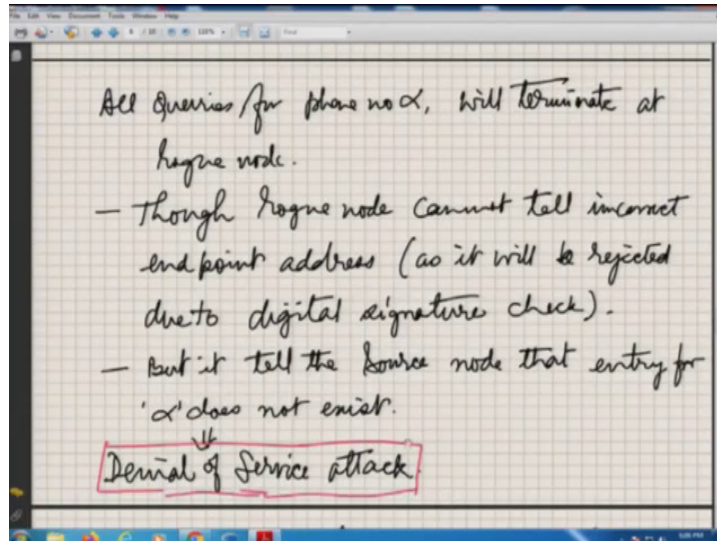 File Edit View Document Tools Window Help
6 / 10 118% Find
All Queries for phone no α, will terminate at
rogue node.
– Though rogue node cannot tell incorrect
endpoint address (as it will be rejected
due to digital signature check).
– But it tell the source node that entry for
'α' does not exist.
⇓
Denial of Service attack.
5:06 PM